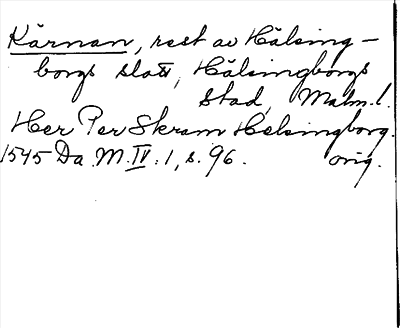 Kärnan, rest av Hälsing-
borgs slott, Hälsingborgs
stad, Malm. l.
Her Per Skram Helsingborg.
1545 Da. M. IV: 1, s. 96. orig.